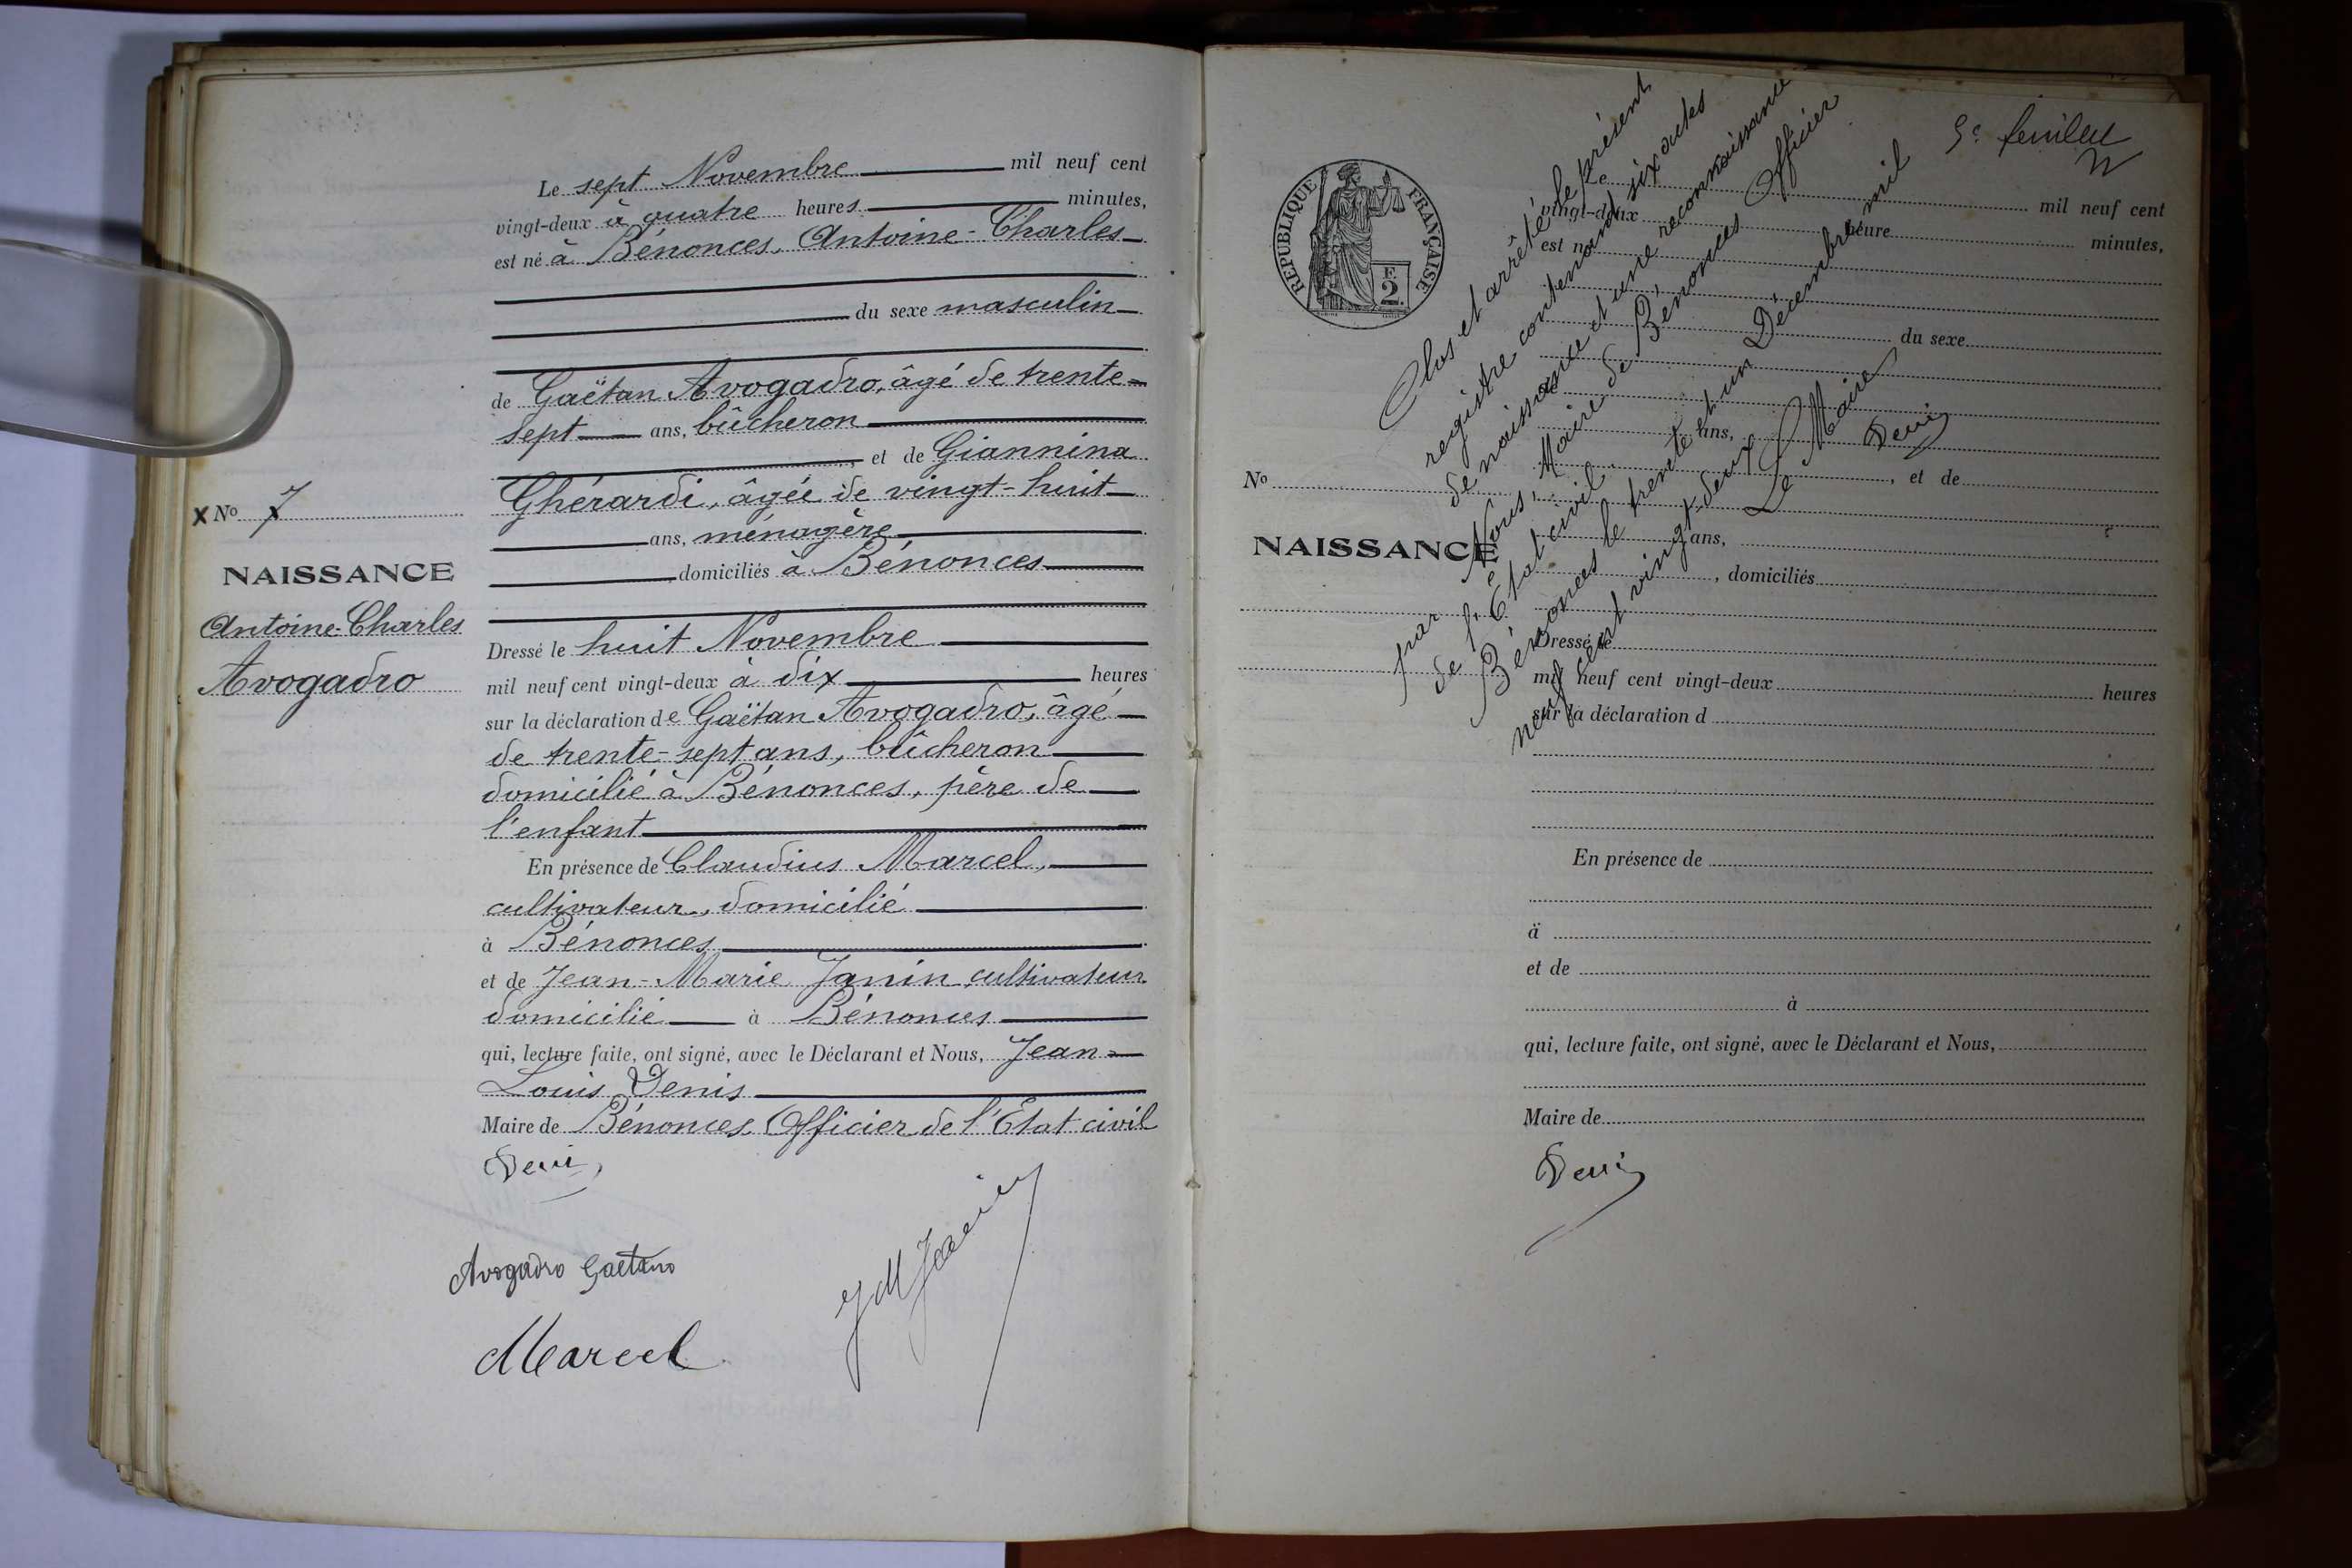 Le sept Novembre mil neuf cent
vingt-deux à quatre heures minutes,
est né à Bénonces, Antoine-Charles
du sexe masculin
de Gaëtan Avogadro, âgé de trente-
sept ans, bûcheron
et de Giannina
Ghérardi, âgée de vingt-huit
ans, ménagère
domiciliés à Bénonces
X No 7
NAISSANCE
Antoine-Charles
Avogadro
Dressé le huit Novembre
mil neuf cent vingt-deux à dix heures
sur la déclaration de Gaëtan Avogadro, âgé
de trente-sept ans, bûcheron
domicilié à Bénonces, père de
l'enfant
En présence de Claudius Marcel,
cultivateur, domicilié
à Bénonces
et de Jean-Marie Janin, cultivateur
domicilié à Bénonces
qui, lecture faite, ont signé, avec le Déclarant et Nous, Jean-
Louis Denis
Maire de Bénonces, Officier de l'Etat civil
Denis
Avogadro Gaetano
JM Janin
Marcel
5e feuillet
RÉPUBLIQUE FRANÇAISE
F.
2
Le mil neuf cent
vingt-deux heure minutes,
est n
du sexe
de
ans,
, et de
No
ans,
NAISSANCE
, domiciliés
Dressé le
mil neuf cent vingt-deux heures
sur la déclaration d
En présence de
à
et de
à
qui, lecture faite, ont signé, avec le Déclarant et Nous,
Maire de
Clos et arrêté le présent
registre contenant six actes
de naissance et une reconnaissance
par Nous, Maire de Bénonces Officier
de l'Etat civil.
Bénonces le trente et un Décembre mil
neuf cent vingt-deux
Le Maire
Denis
Denis